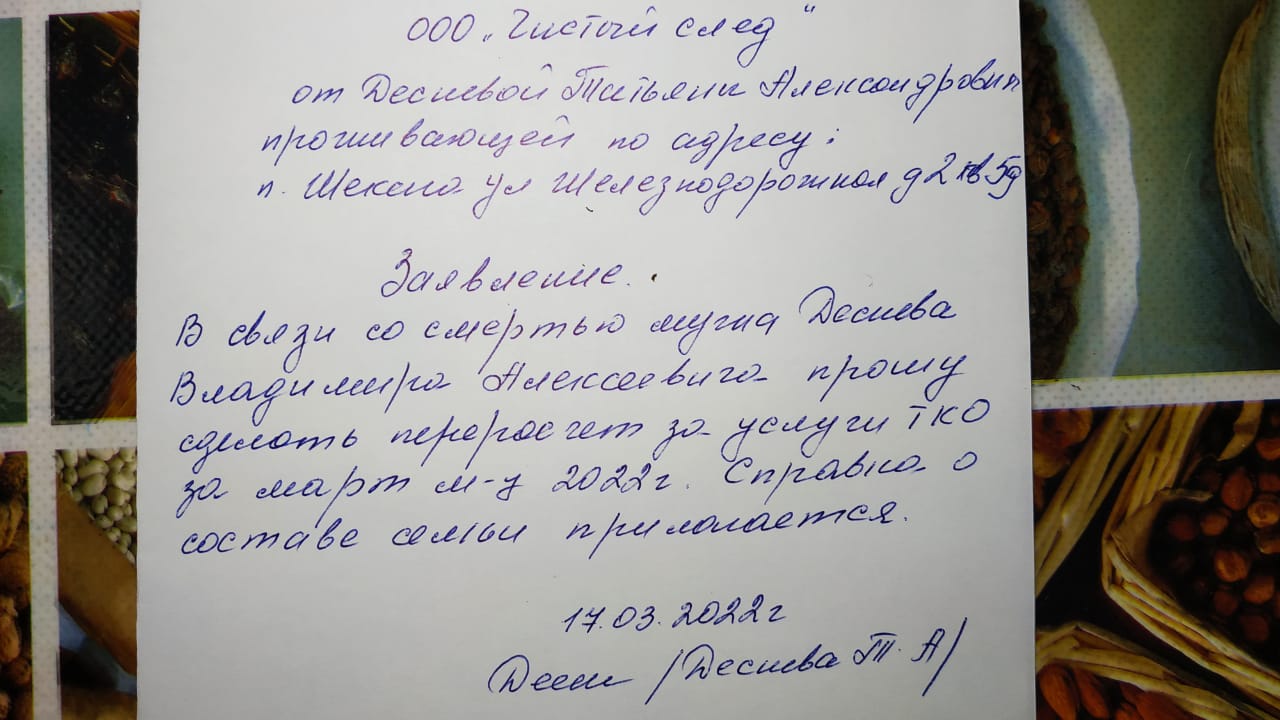 ООО „Чистый след“
от Десневой Татьяны Александровн
проживающей по адресу:
п. Шексна ул Железнодорожная д 2 кв 59
Заявление.
В связи со смертью мужа Деснева
Владимира Алексеевича прошу
сделать перерасчет за услуги ТКО
за март м-ц 2022г. Справка о
составе семьи прилагается.
17.03.2022г
/Деснева Т. А/